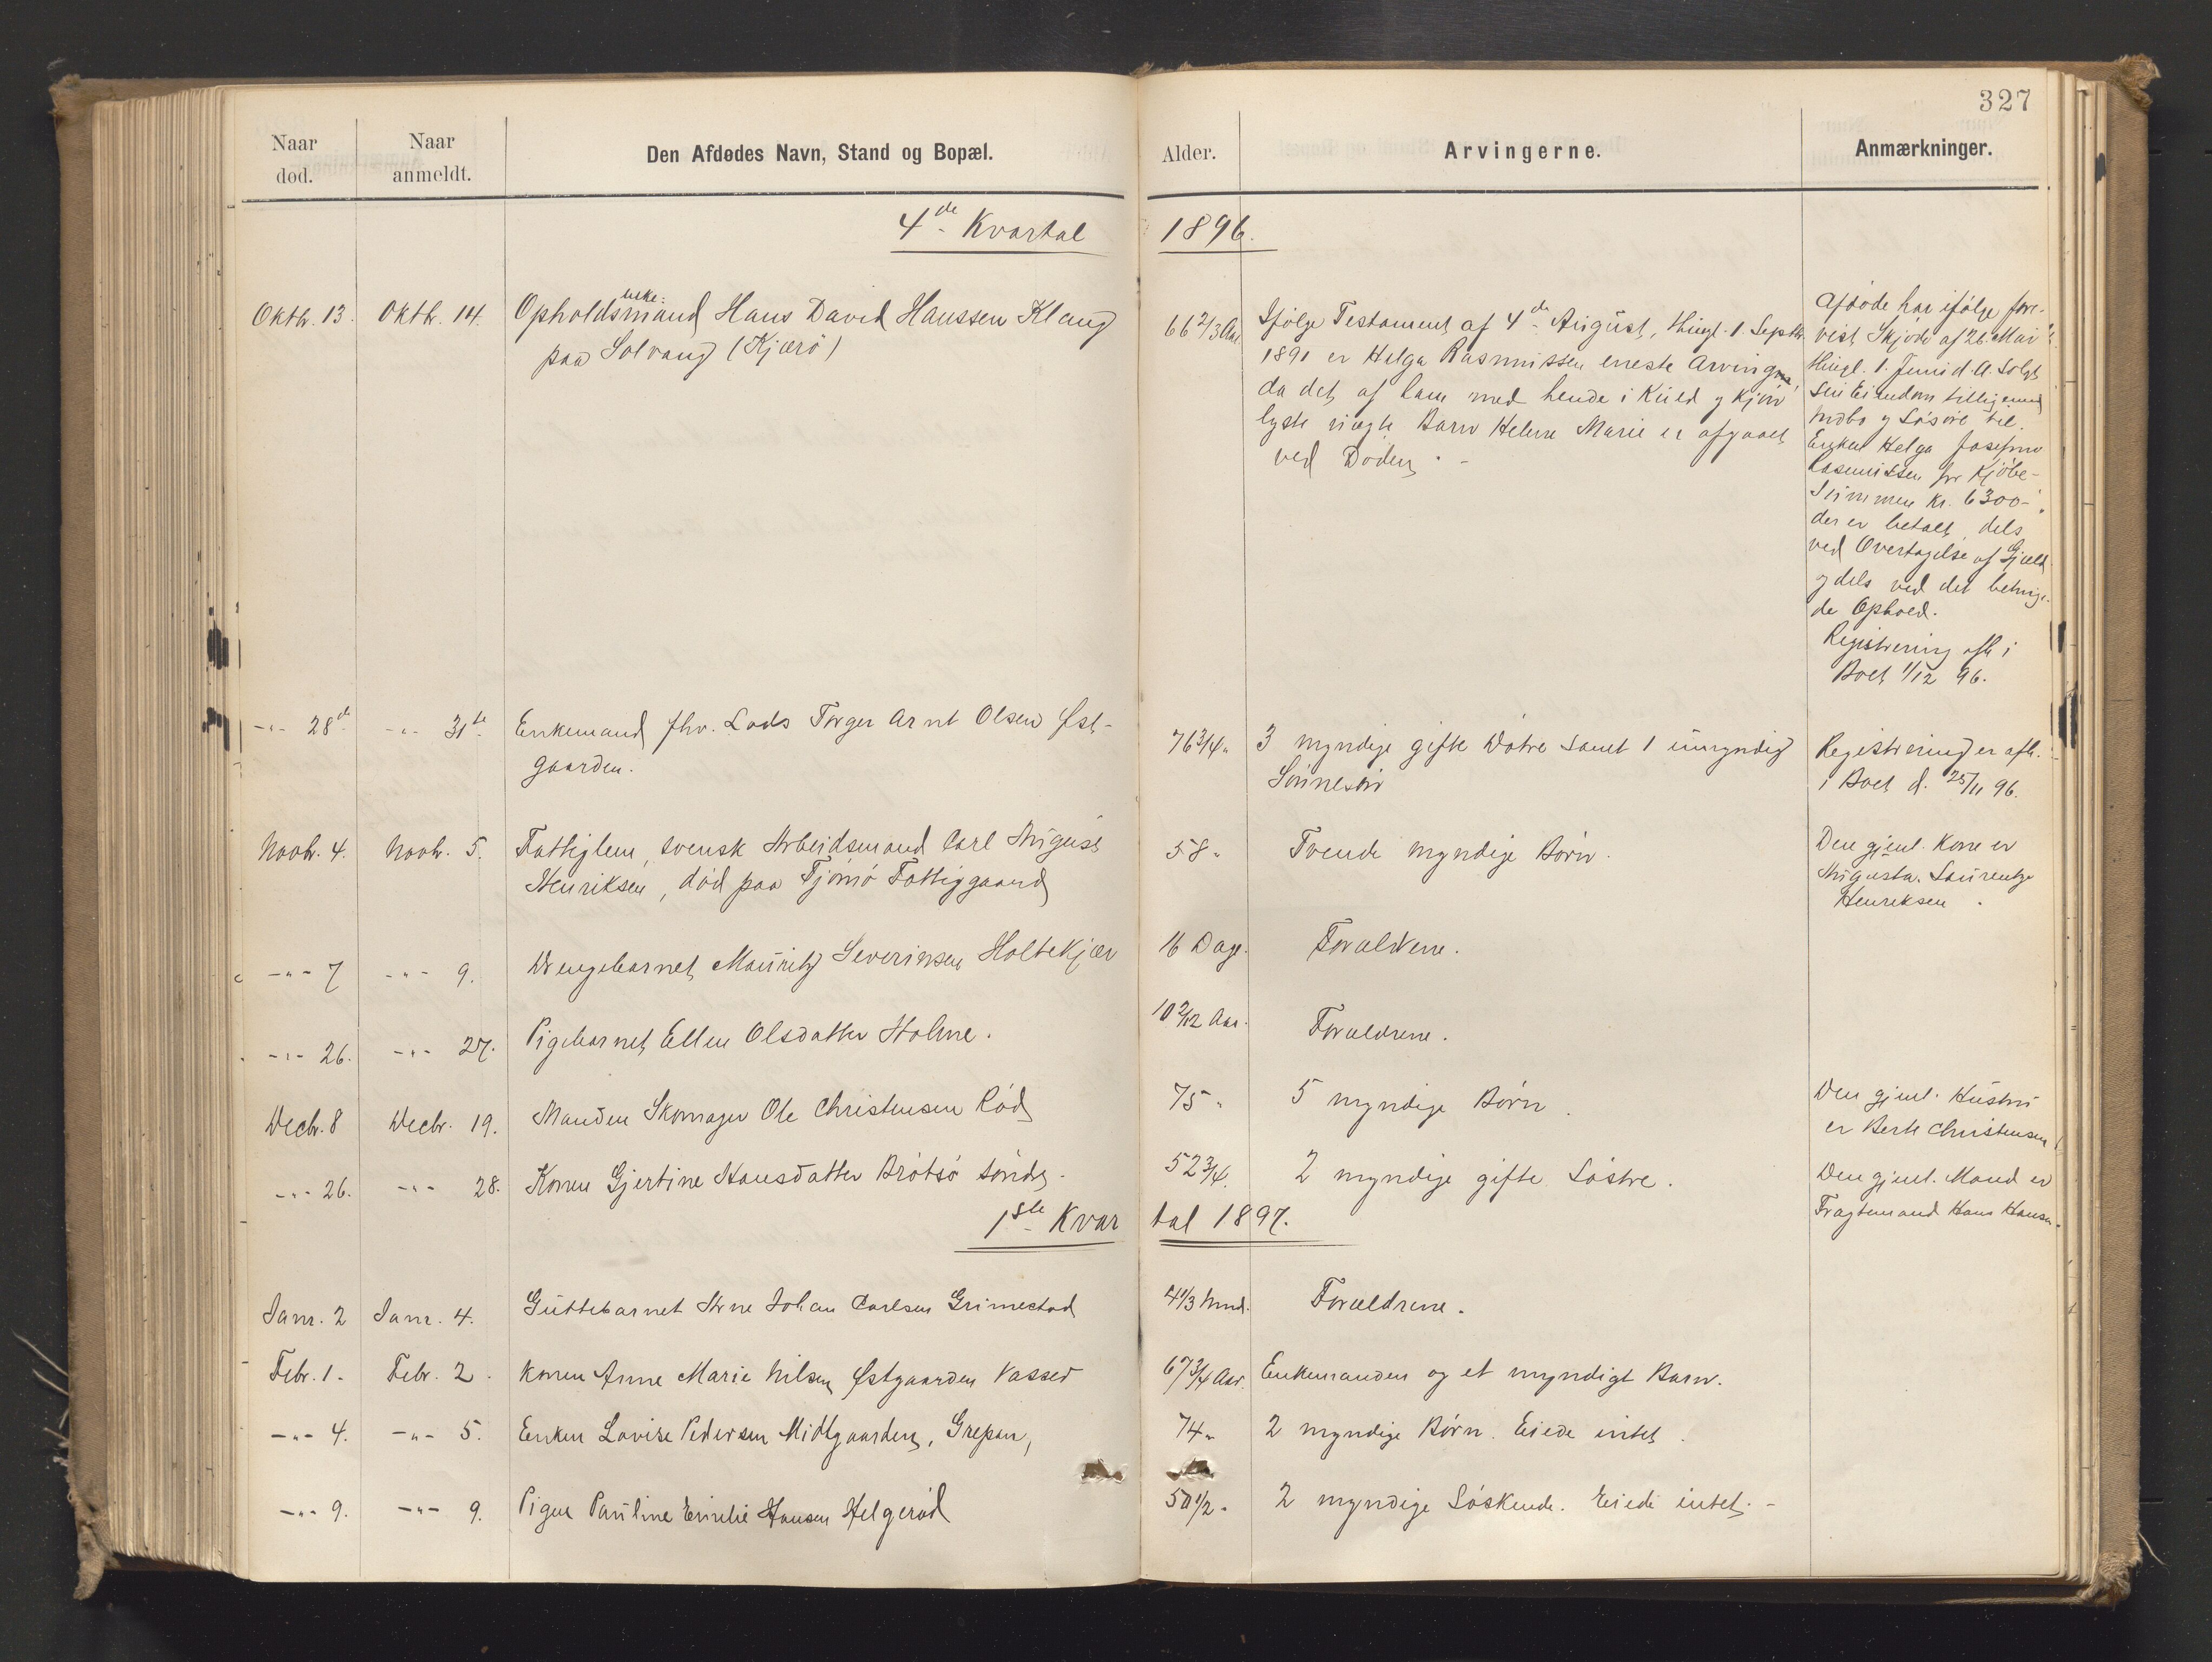 327
Naar død.
Naar anmeldt.
Den Afdødes Navn, Stand og Bopæl.
Alder.
Arvingerne.
Anmærkninger.
4de Kvartal 1896.
Oktbr. 13. Oktbr. 14. Opholdsenkemand Hans David Hanssen Klaug
paa Solvang (Kjærø)
66 2/3 Aar
Ifølge Testament af 4de August, thingl. 1. Septbr.
1891 er Helga Rasmussen eneste Arving,
da det af ham med hende i Kuld og Kjøn
lyste uægte Barn Helene Marie er afgaaet
ved Døden. -
Afdøde har ifølge fore-
vist Skjøde af 26. Mai
thingl. 1. Juni d. A. solgt
sin Eiendom tilligemed
Indbo og Løsøre til
Enken Helga Josefine
Rasmussen for Kjøbe-
summen Kr. 6300-,
der er betalt, dels
ved Overtagelse af Gjæld
og dels ved det betinge-
de Ophold.
Registrering afh. i
Boet 1/12 96.
-"- 28de -"- 31te Enkemand fhv. Lods Torger Arnt Olsen Øst-
gaarden.
76 3/4 "
3 myndige gifte Døtre samt 1 umyndig
Sønnesøn
Registrering er afh.
i Boet d. 25/11 96.
Novbr. 4. Novbr. 5. Fattiglem, svensk Arbeidsmand Carl August
Henriksen, død paa Tjømø Fattiggaard
58 "
Tvende myndige Børn.
Den gjenl. Kone er
Augusta Laurentze
Henriksen.
-"- 7 -"- 9. Drengebarnet Mauritz Severinsen Holtekjær
16 Dage.
Forældrene.
-"- 26. -"- 27. Pigebarnet Ellen Olsdatter Holme.
10 2/12 Aar.
Forældrene.
Decbr. 8 Decbr. 19. Manden Skomager Ole Christensen Rød
75 "
5 myndige Børn.
Den gjenl. Hustru
er Berte Christensen
-"- 26. -"- 28. Konen Gjertine Hansdatter Brøtsø søndre.
52 3/4.
2 myndige gifte Søstre.
Den gjenl. Mand er
Fragtemand Hans Hansen.
1ste Kvartal 1897.
Janr. 2 Janr. 4. Guttebarnet Arne Johan Carlsen Grimestad
4 1/3 Mnd.
Forældrene.
Febr. 1. Febr. 2. Konen Anne Marie Nilsen Østgaarden Vasser
67 3/4 Aar.
Enkemanden og et myndigt Barn.
-"- 4. -"- 5. Enken Lovise Pedersen Midtgaarden, Grepan,
74 "
2 myndige Børn. Eiede intet.
-"- 9. -"- 9. Pigen Pauline Emilie Hansen Helgerød
50 1/2 "
2 myndige Søskende. Eiede intet. -